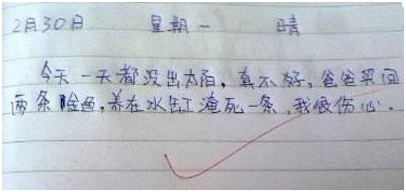 2月30日 星期一 晴
今天一天都没出太阳，真不好，爸爸买回
两条金鱼，养在水缸淹死一条，我很伤心．